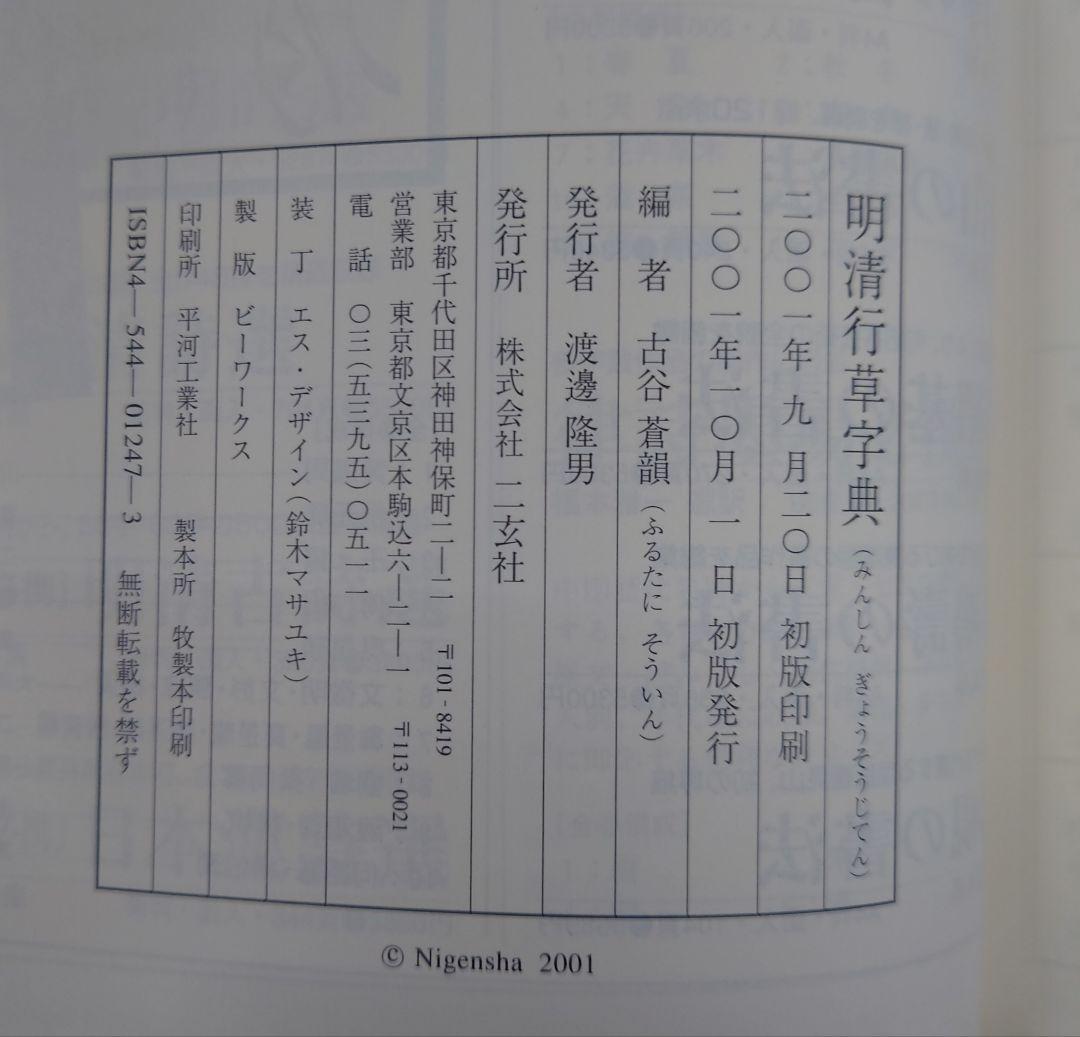 明清行草字典（みんしん ぎょうそうじてん）
二〇〇一年 九 月二〇日 初版印刷
二〇〇一年一〇月 一 日 初版発行
編 者 古谷 蒼韻（ふるたに そういん）
発行者 渡邊 隆男
発行所 株式会社 二玄社
東京都千代田区神田神保町二―二 〒101-8419
営業部 東京都文京区本駒込六―二―一 〒113-0021
電 話 〇三（五三九五）〇五一一
装 丁 エス・デザイン（鈴木マサユキ）
製 版 ビーワークス
印刷所 平河工業社 製本所 牧製本印刷
ISBN4―544―01247―3 無断転載を禁ず
© Nigensha 2001